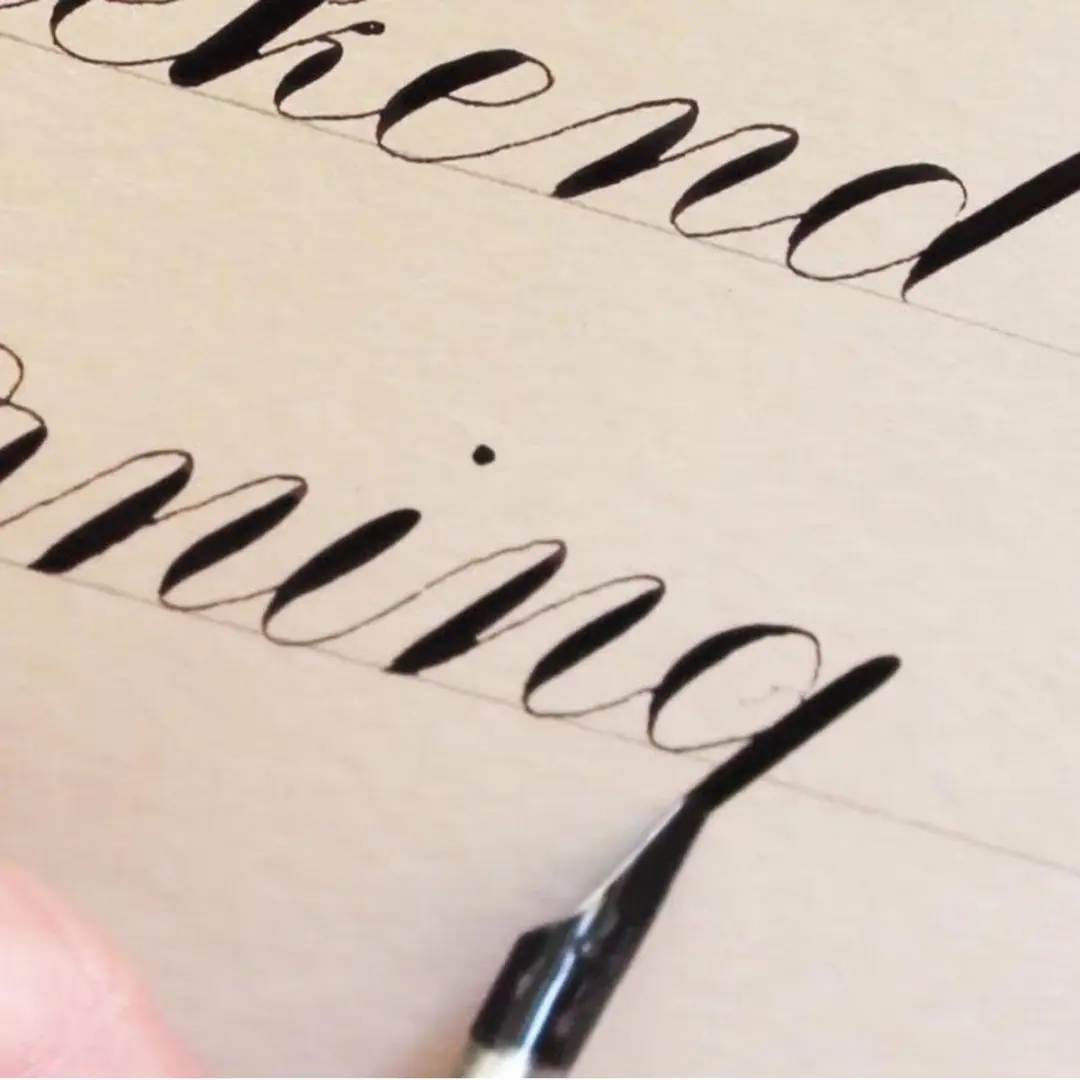 ekend
rning